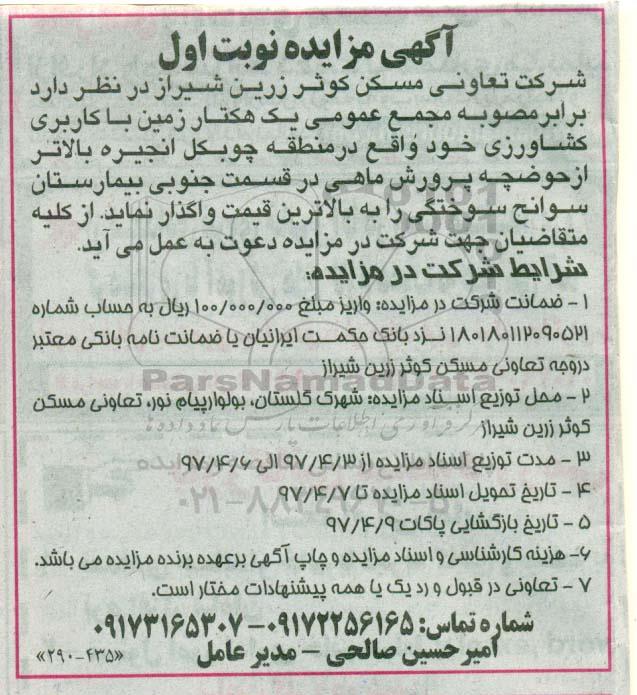 آگهی مزایده نوبت اول
شرکت تعاونی مسکن کوثر زرین شیراز در نظر دارد
برابر مصوبه مجمع عمومی یک هکتار زمین با کاربری
کشاورزی خود واقع در منطقه چوبکل انجیره بالاتر
از حوضچه پرورش ماهی در قسمت جنوبی بیمارستان
سوانح سوختگی را به بالاترین قیمت واگذار نماید. از کلیه
متقاضیان جهت شرکت در مزایده دعوت به عمل می آید.
شرایط شرکت در مزایده:
۱ - ضمانت شرکت در مزایده: واریز مبلغ ۱۰۰/۰۰۰/۰۰۰ ریال به حساب شماره
۱۸۰۱۸۰۱۱۲۰۹۰۵۲۱ نزد بانک حکمت ایرانیان یا ضمانت نامه بانکی معتبر
دروجه تعاونی مسکن کوثر زرین شیراز
۲ - محل توزیع اسناد مزایده: شهرک گلستان، بولوارپیام نور، تعاونی مسکن
کوثر زرین شیراز
۳ - مدت توزیع اسناد مزایده از ۹۷/۴/۳ الی ۹۷/۴/۶
۴ - تاریخ تحویل اسناد مزایده تا ۹۷/۴/۷
۵ - تاریخ بازگشایی پاکات ۹۷/۴/۹
۶- هزینه کارشناسی و اسناد مزایده و چاپ آگهی برعهده برنده مزایده می باشد.
۷ - تعاونی در قبول و رد یک یا همه پیشنهادات مختار است.
شماره تماس: ۰۹۱۷۲۲۵۶۱۶۵ - ۰۹۱۷۳۱۶۵۳۰۷
امیرحسین صالحی - مدیر عامل
«۲۹۰-۴۳۵»
ParsNamadData